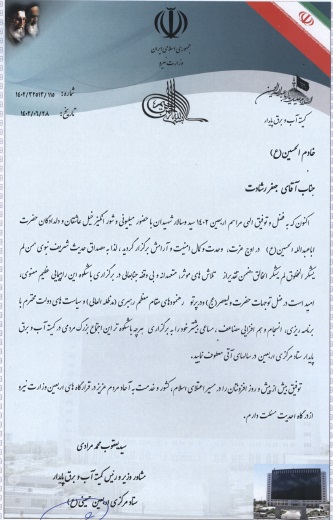 جمهوری اسلامی ایران
وزارت نیرو
شماره: ۱۴۰۲/۳۲۵۱۳/۷۱۵
تاریخ: ۱۴۰۲/۰۶/۲۸
کمیته آب و برق پایدار
خادم الحسین(ع)
جناب آقای جعفر رشادت
اکنون که به فضل و توفیق الهی مراسم اربعین ۱۴۰۲ سید و سالار شهیدان با حضور میلیونی و شورانگیز خیل عاشقان و دلدادگان حضرت
اباعبدالله الحسین(ع) در اوج عزت، وحدت و کمال امنیت و آرامش برگزار گردید، لذا به مصداق حدیث شریف نبوی من لم
یشکر المخلوق لم یشکر الخالق ضمن تقدیر از تلاش های موثر، متعهدانه و بی وقفه جنابعالی در برگزاری باشکوه این راهپیمایی عظیم معنوی،
امید است در ظل توجهات حضرت ولیعصر(عج) و در پرتو رهنمودهای مقام معظم رهبری (مدظله العالی) و سیاست های دولت محترم با
برنامه ریزی، انسجام و هم افزایی مضاعف، مساعی بیشتر خود را به برگزاری هرچه باشکوه تر این اجتماع بزرگ مردمی در کمیته آب و برق
پایدار ستاد مرکزی اربعین در سالهای آتی معطوف نمایید.
توفیق بیش از پیش و روز افزونتان را در مسیر اعتلای اسلام، کشور و خدمت به آحاد مردم عزیز در قرارگاه های اربعین وزارت نیرو
از درگاه احدیت مسئلت دارم.
سید یعقوب محمد مرادی
مشاور وزیر و رئیس کمیته آب و برق پایدار
ستاد مرکزی اربعین حسینی(ع)